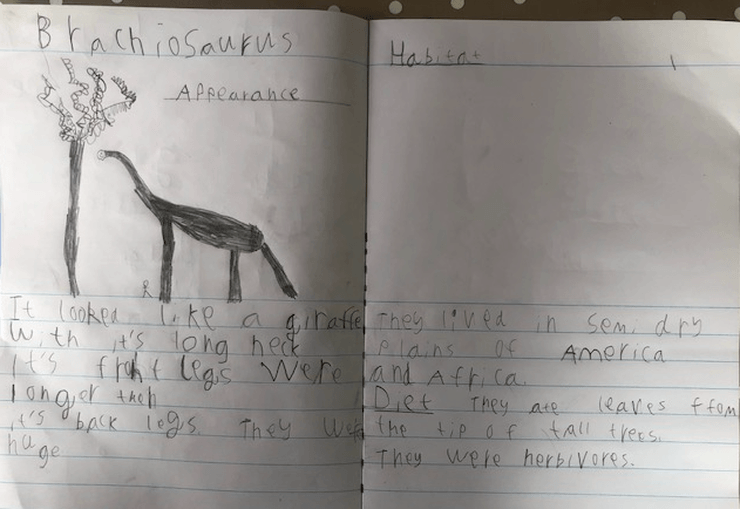 Brachiosaurus
Appearance
It looked like a giraffe
with it's long neck
It's front legs were
longer then
it's back legs. They were
huge
Habitat
They lived in semi dry
plains of America
and Africa.
Diet They ate leaves from
the tip of tall trees.
They were herbivores.